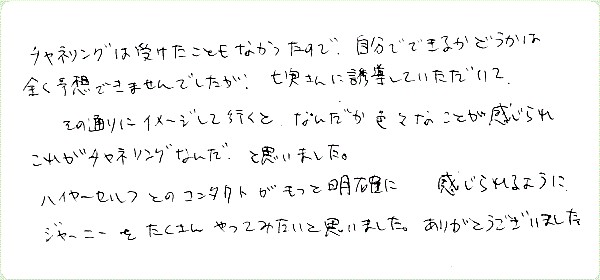 チャネリングは受けたこともなかったので、自分でできるかどうかは
全く予想できませんでしたが、七実さんに誘導していただいて、
その通りにイメージして行くと、なんだか色々なことが感じられ
これがチャネリングなんだ、と思いました。
ハイヤーセルフとのコンタクトがもっと明確に 感じられるように、
ジャーニーをたくさんやってみたいと思いました。ありがとうございました